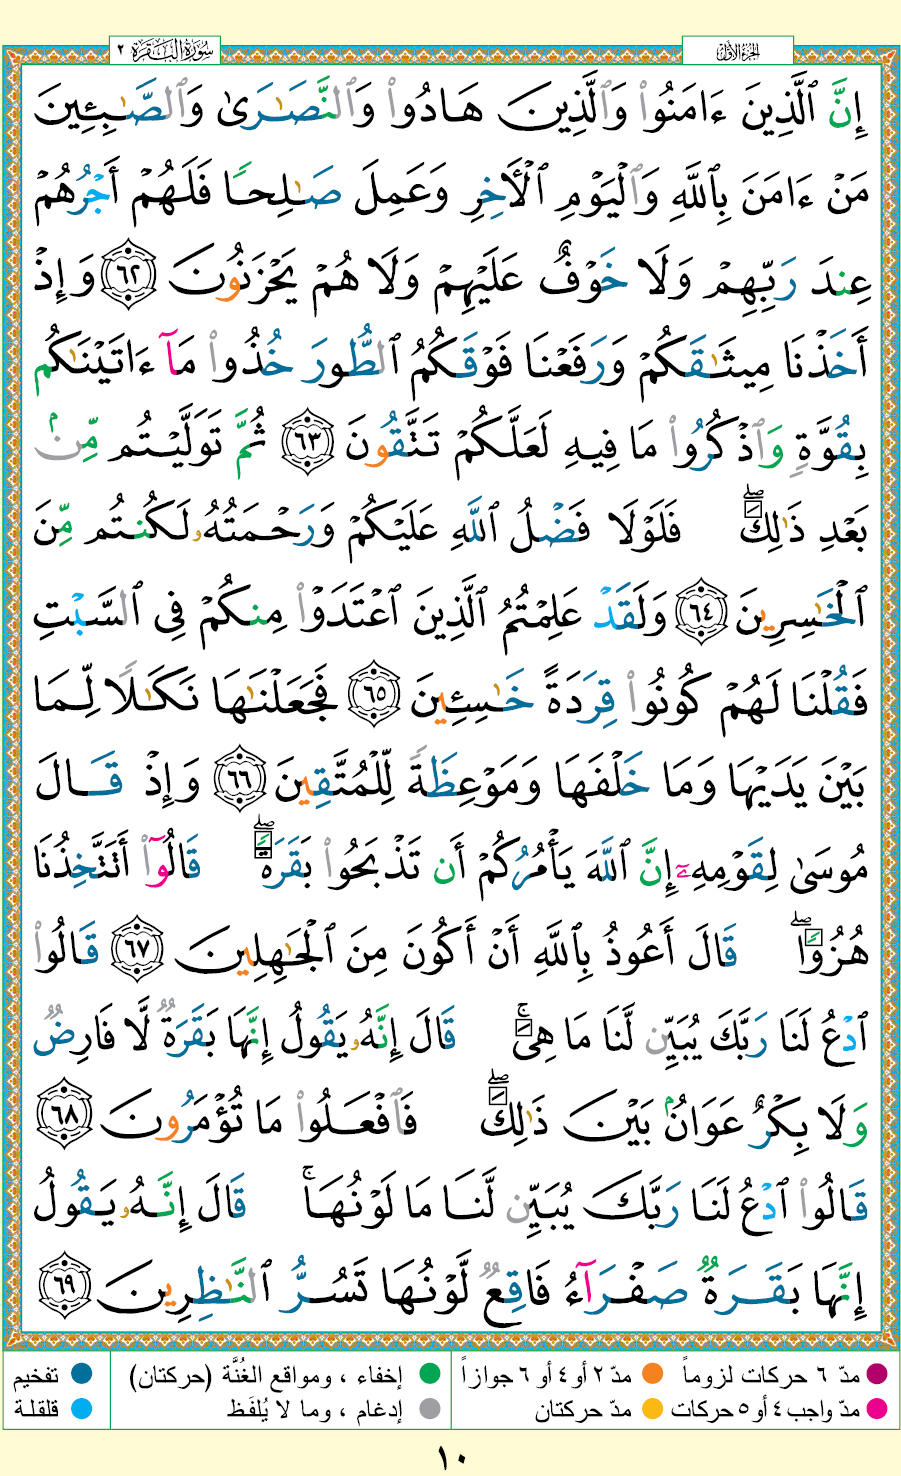 الجزء الأول
سورة البقرة ٢
إِنَّ ٱلَّذِينَ ءَامَنُوا۟ وَٱلَّذِينَ هَادُوا۟ وَٱلنَّصَـٰرَىٰ وَٱلصَّـٰبِـِٔينَ
مَنْ ءَامَنَ بِٱللَّهِ وَٱلْيَوْمِ ٱلْـَٔاخِرِ وَعَمِلَ صَـٰلِحًا فَلَهُمْ أَجْرُهُمْ
عِندَ رَبِّهِمْ وَلَا خَوْفٌ عَلَيْهِمْ وَلَا هُمْ يَحْزَنُونَ ٦٢ وَإِذْ
أَخَذْنَا مِيثَـٰقَكُمْ وَرَفَعْنَا فَوْقَكُمُ ٱلطُّورَ خُذُوا۟ مَآ ءَاتَيْنَـٰكُم
بِقُوَّةٍ وَٱذْكُرُوا۟ مَا فِيهِ لَعَلَّكُمْ تَتَّقُونَ ٦٣ ثُمَّ تَوَلَّيْتُم مِّنۢ
بَعْدِ ذَٰلِكَ ۖ فَلَوْلَا فَضْلُ ٱللَّهِ عَلَيْكُمْ وَرَحْمَتُهُۥ لَكُنتُم مِّنَ
ٱلْخَـٰسِرِينَ ٦٤ وَلَقَدْ عَلِمْتُمُ ٱلَّذِينَ ٱعْتَدَوْا۟ مِنكُمْ فِى ٱلسَّبْتِ
فَقُلْنَا لَهُمْ كُونُوا۟ قِرَدَةً خَـٰسِـِٔينَ ٦٥ فَجَعَلْنَـٰهَا نَكَـٰلًا لِّمَا
بَيْنَ يَدَيْهَا وَمَا خَلْفَهَا وَمَوْعِظَةً لِّلْمُتَّقِينَ ٦٦ وَإِذْ قَالَ
مُوسَىٰ لِقَوْمِهِۦٓ إِنَّ ٱللَّهَ يَأْمُرُكُمْ أَن تَذْبَحُوا۟ بَقَرَةً ۖ قَالُوٓا۟ أَتَتَّخِذُنَا
هُزُوًا ۖ قَالَ أَعُوذُ بِٱللَّهِ أَنْ أَكُونَ مِنَ ٱلْجَـٰهِلِينَ ٦٧ قَالُوا۟
ٱدْعُ لَنَا رَبَّكَ يُبَيِّن لَّنَا مَا هِىَ ۚ قَالَ إِنَّهُۥ يَقُولُ إِنَّهَا بَقَرَةٌ لَّا فَارِضٌ
وَلَا بِكْرٌ عَوَانٌۢ بَيْنَ ذَٰلِكَ ۖ فَٱفْعَلُوا۟ مَا تُؤْمَرُونَ ٦٨
قَالُوا۟ ٱدْعُ لَنَا رَبَّكَ يُبَيِّن لَّنَا مَا لَوْنُهَا ۚ قَالَ إِنَّهُۥ يَقُولُ
إِنَّهَا بَقَرَةٌ صَفْرَآءُ فَاقِعٌ لَّوْنُهَا تَسُرُّ ٱلنَّـٰظِرِينَ ٦٩
مدّ ٦ حركات لزوماً مدّ ٢ أو ٤ أو ٦ جوازاً إخفاء ، ومواقع الغُنَّة (حركتان) تفخيم
مدّ واجب ٤ أو ٥ حركات مدّ حركتان إدغام ، وما لا يُلفَظ قلقلة
١٠